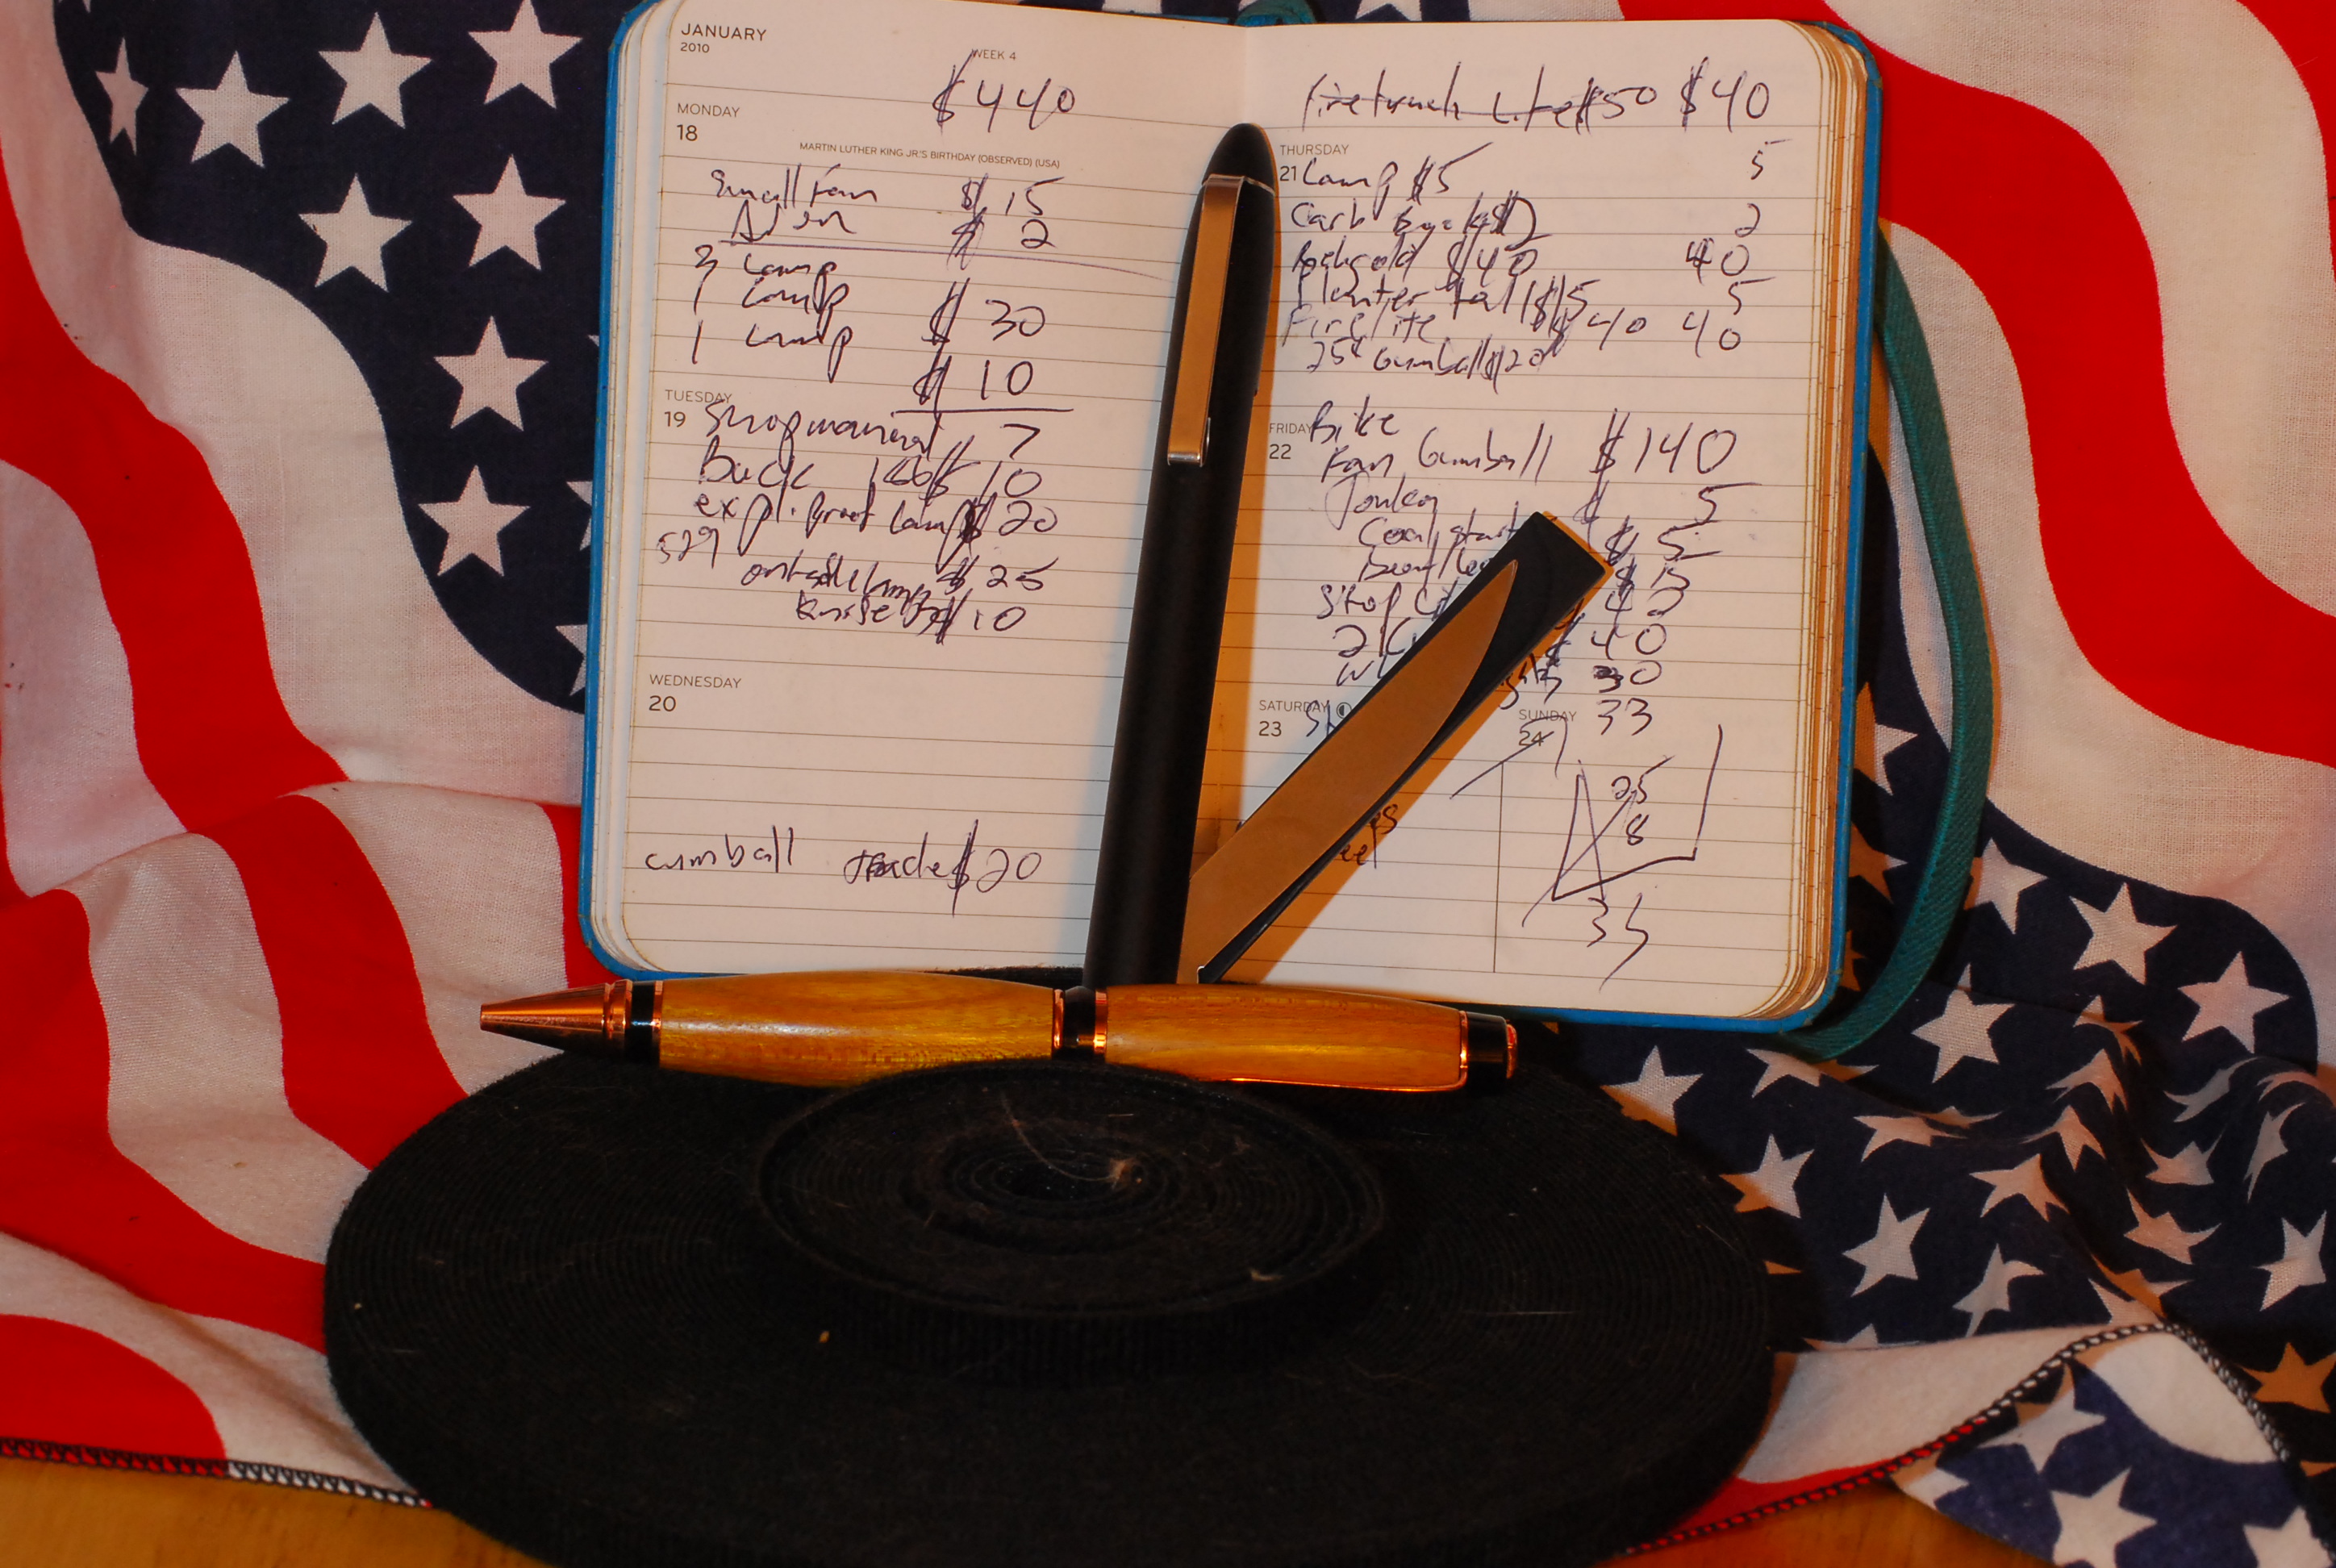 JANUARY
2010
WEEK 4
$440
MONDAY
18
MARTIN LUTHER KING JR.'S BIRTHDAY (OBSERVED) (USA)
Small Fan $ 15
$ 2
3 Lamp
1 Lamp $ 30
1 Lamp
$ 10
TUESDAY
19
Shop manual 7
Buck 10
expl. proof lamp $ 20
529
outside lamp $ 25
Knife $ 10
WEDNESDAY
20
Gumball trade $ 20
firetruck Lite $50 $40
THURSDAY
21
Lamp $5 5
Carb $2 2
$40 40
Planter tall $15 5
Fire lite $40 40
25¢ Gumball $20
FRIDAY
22
Bike
Fan Gumball $140
$ 5
Coal $ 5
$ 15
Stop 42
2 $ 40
30
33
SATURDAY
23
SUNDAY
24
25
8